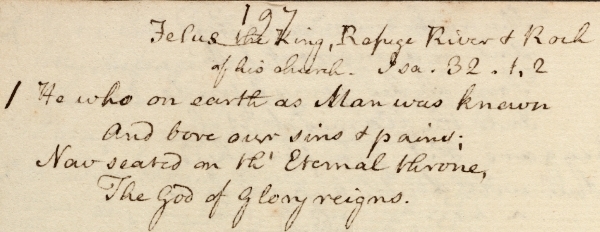 197
Jesus the King, Refuge River & Rock
of his church. Isa. 32. 1, 2
1 He who on earth as Man was known
And bore our sins & pains;
Now seated on th' Eternal throne,
The God of Glory reigns.